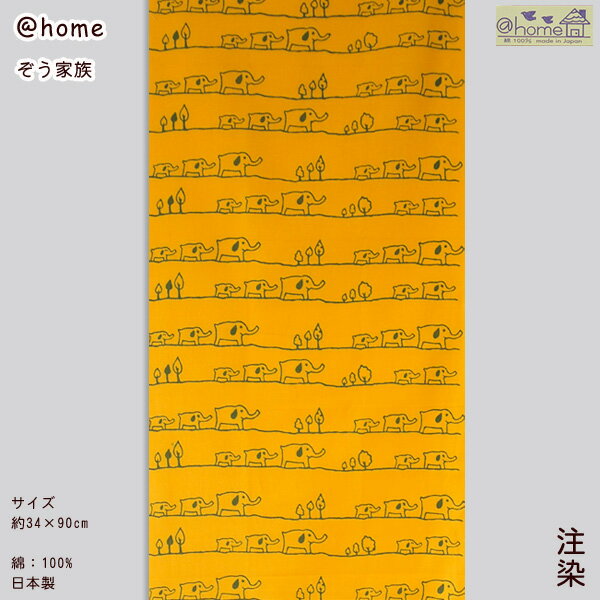 @home
ぞう家族
@home
綿100% made in Japan
サイズ
約34×90cm
綿：100%
日本製
注染